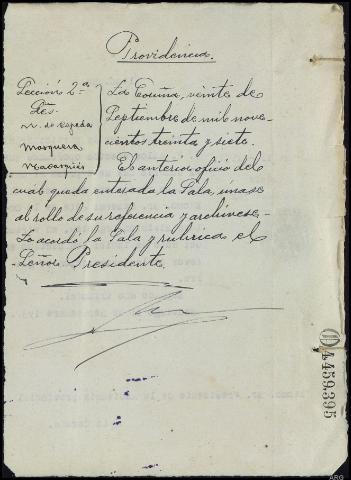 Providencia.
Sección 2ª
Sres.
V. de Cepeda
Mosquera
Macarquiis
La Coruña, veinte de
Septiembre de mil nove-
cientos treinta y siete.
El anterior oficio del
cual queda enterada la Sala, unase
al rollo de su referencia y archivese-
Lo acordó la Sala y rubrica el
Señor Presidente.
4459,395
ARG